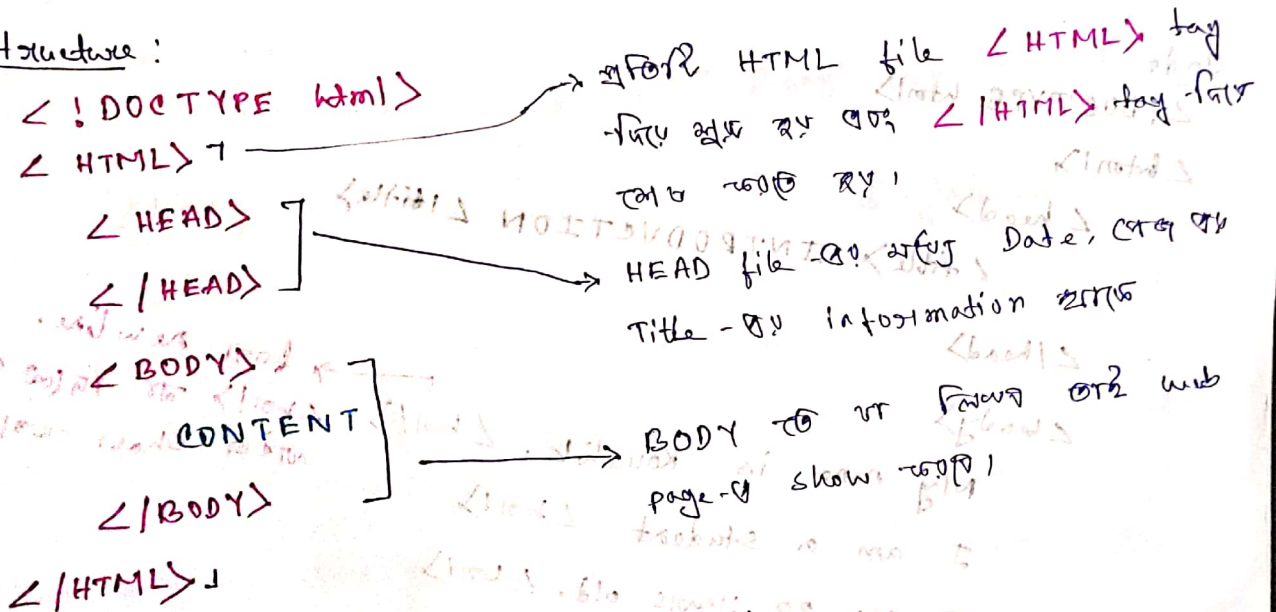 structure :
<!DOCTYPE html>
<HTML>
<HEAD>
</HEAD>
<BODY>
CONTENT
</BODY>
</HTML>
প্রতিটি HTML file <HTML> tag
দিয়ে শুরু হয় এবং </HTML> tag -দিয়ে
শেষ করতে হয়।
HEAD file -এর মধ্যে Date, পেজ এর
Title - এর information থাকে
BODY তে যা লিখব তাই web
page-এ show করবে।